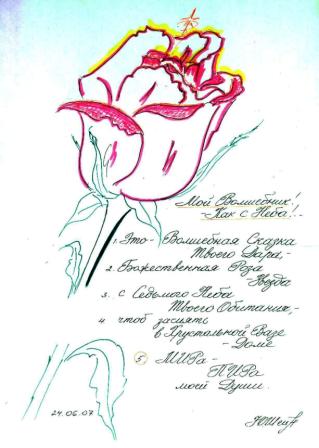 Мой Волшебник!
- Как с Неба!..
1. Это - Волшебная Сказка
Твоего Дара,-
2. Божественная Роза
- Звезда
3. с Седьмого Неба
Твоего Обитания,-
4. чтоб засиять
в Хрустальной Вазе
- Доме
5. МИРа-
- ПИРа
моей Души.
24.06.07